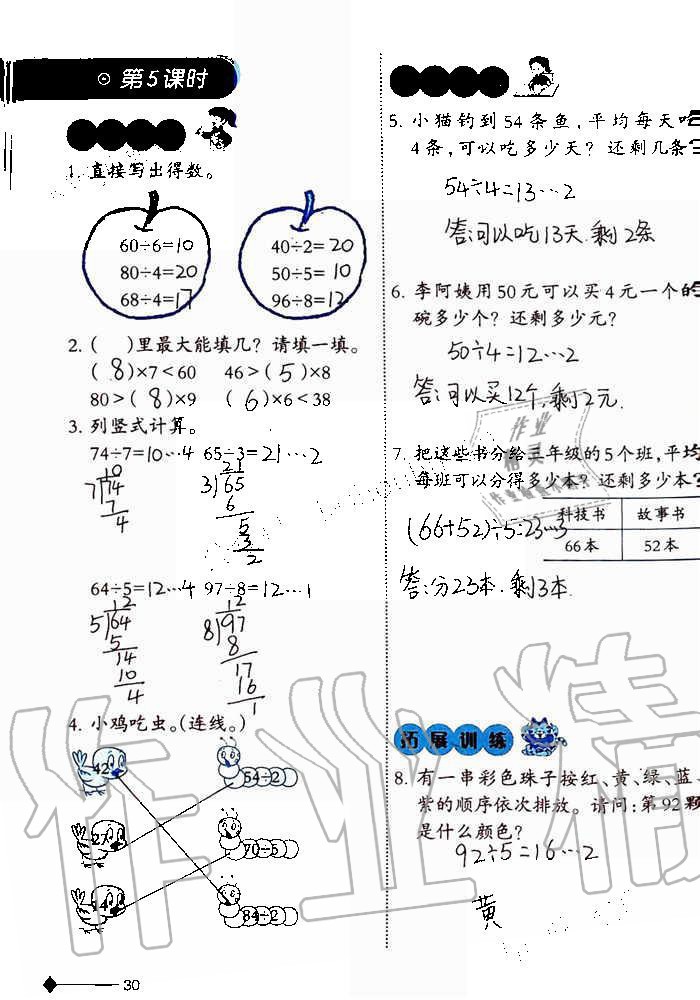 第5课时
1. 直接写出得数。
60÷6=10
80÷4=20
68÷4=17
40÷2=20
50÷5=10
96÷8=12
2. ( )里最大能填几？请填一填。
( 8 )×7＜60 46＞( 5 )×8
80＞( 8 )×9 ( 6 )×6＜38
3. 列竖式计算。
74÷7=10…4 65÷3=21…2
10
7 74
7
4
21
3 65
6
5
3
2
64÷5=12…4 97÷8=12…1
12
5 64
5
14
10
4
12
8 97
8
17
16
1
4. 小鸡吃虫。(连线。)
42 54÷2
27 70÷5
14 84÷2
30
5. 小猫钓到54条鱼，平均每天吃
4条，可以吃多少天？还剩几条？
54÷4=13…2
答：可以吃13天，剩2条
6. 李阿姨用50元可以买4元一个的
碗多少个？还剩多少元？
50÷4=12…2
答：可以买12个，剩2元.
7. 把这些书分给三年级的5个班，平均
每班可以分得多少本？还剩多少本？
科技书 故事书
66本 52本
(66+52)÷5=23…3
答：分23本，剩3本.
拓展训练
8. 有一串彩色珠子按红、黄、绿、蓝、
紫的顺序依次排放。请问：第92颗
是什么颜色？
92÷5=16…2
黄
作业精